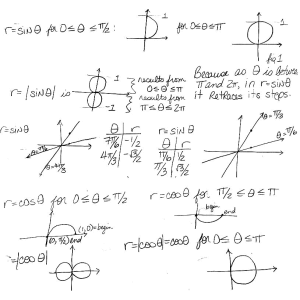 r=sinθ for 0≤θ≤π/2: 1 for 0≤θ≤π 1
fig 1
r=|sinθ| is 1 -1
results from 0≤θ≤π
results from π≤θ≤2π
Because as θ is between
π and 2π, in r=sinθ
it retraces its steps.
r=sinθ
θ r
7π/6 -1/2
4π/3 -√3/2
θ=7π/6
θ=4π/3
r=sinθ
θ r
π/6 1/2
π/3 √3/2
θ=π/3
θ=π/6
r=cosθ for 0≤θ≤π/2
(1,0)=begin
(0,π/2) end
r=cosθ for π/2≤θ≤π
begin
end
r=|cosθ|=cosθ for 0≤θ≤π
=|cosθ|